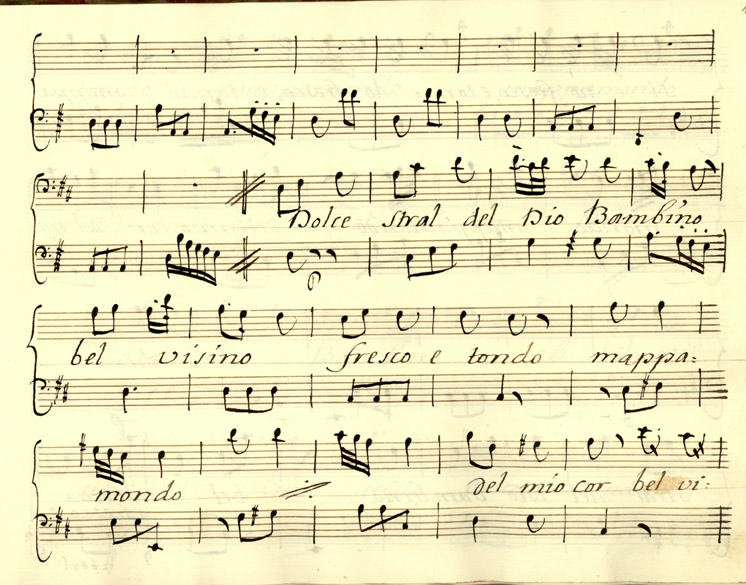 Dolce stral del Dio Bambino
bel visino fresco e tondo mappa:
mondo del mio cor bel vi: